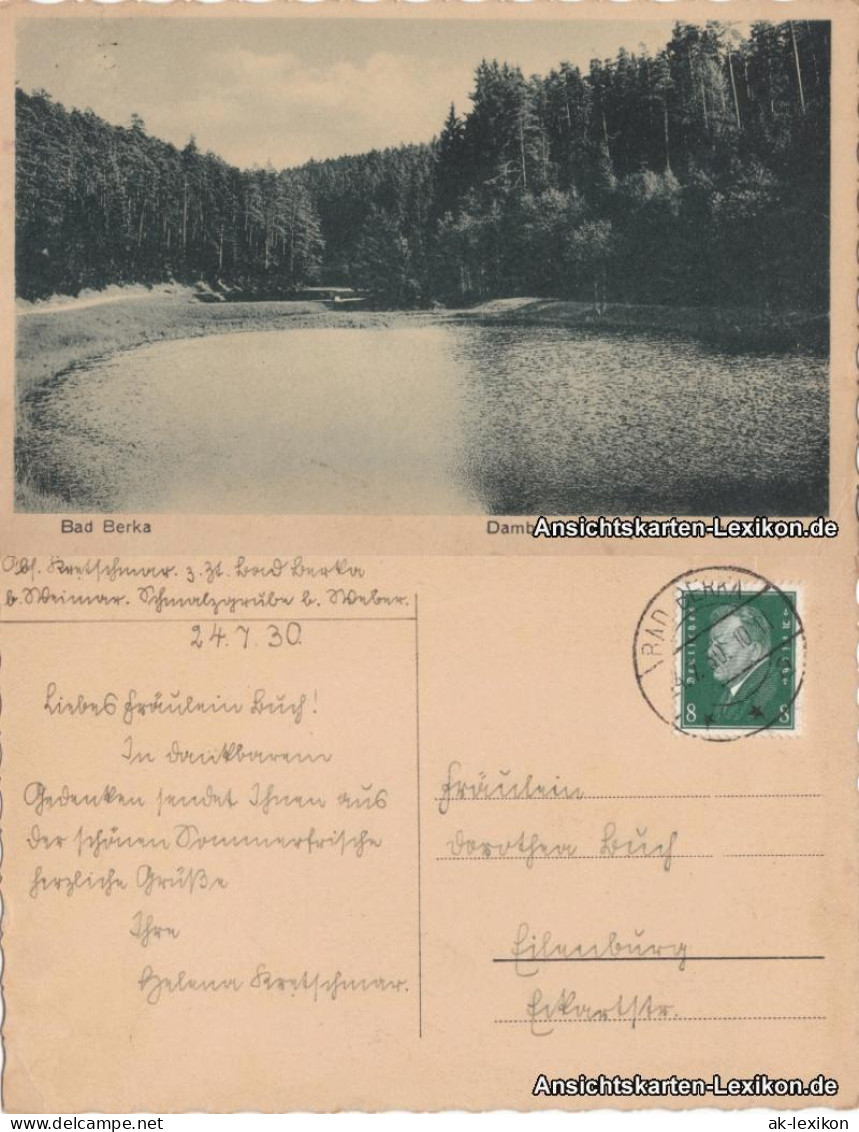 Bad Berka
Damb
Ansichtskarten-Lexikon.de
Abs. Kretschmar. z. Zt. Bad Berka
b. Weimar. Schmalzgrube b. Weber.
24.7.30.
BAD BERKA
Deutsches Reich
8 8
Liebes Fräulein Buch!
In dankbarem
Gedenken sendet Ihnen aus
der schönen Sommerfrische
herzliche Grüße
Ihre
Helena Kretschmar.
Fräulein
Dorothea Buch
Eilenburg
Eckartstr.
Ansichtskarten-Lexikon.de
www.delcampe.net
ak-lexikon